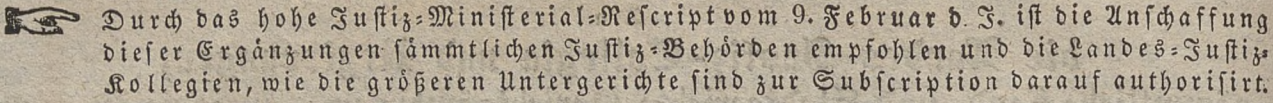 ☞ Durch das hohe Justiz-Ministerial-Rescript vom 9. Februar d. J. ist die Anschaffung
dieser Ergänzungen sämmtlichen Justiz-Behörden empfohlen und die Landes-Justiz-
Kollegien, wie die größeren Untergerichte sind zur Subscription darauf authorisirt.